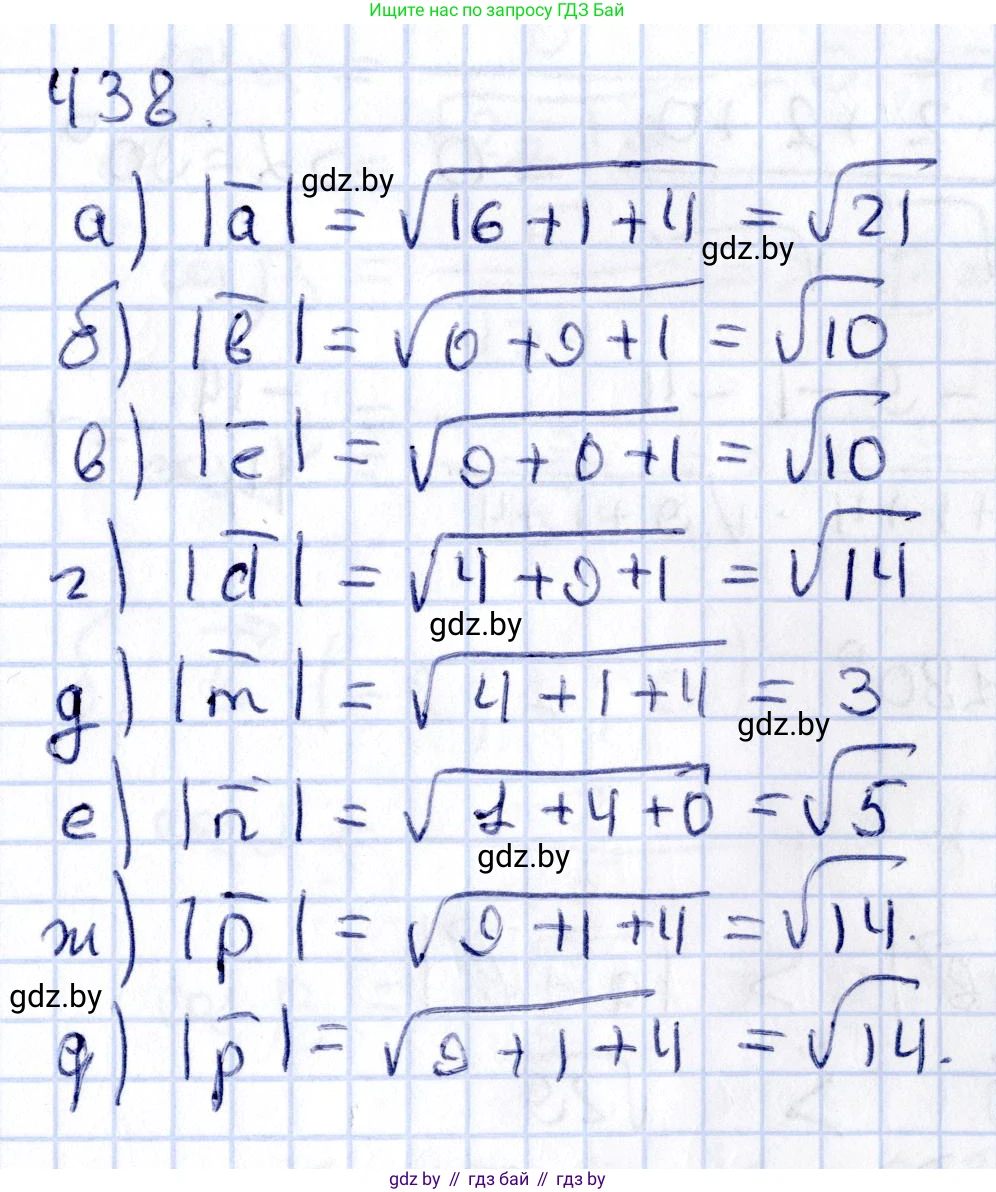 Ищите нас по запросу ГДЗ Бай
438.
а) |a̅| = √16 + 1 + 4 = √21
gdz.by
gdz.by
б) |в̅| = √0 + 9 + 1 = √10
в) |c̅| = √9 + 0 + 1 = √10
г) |d̅| = √4 + 9 + 1 = √14
gdz.by
д) |m̅| = √4 + 1 + 4 = 3
gdz.by
е) |n̅| = √1 + 4 + 0 = √5
gdz.by
ж) |p̅| = √9 + 1 + 4 = √14.
gdz.by
φ) |p̅| = √9 + 1 + 4 = √14.
gdz.by // гдз бай // гдз by